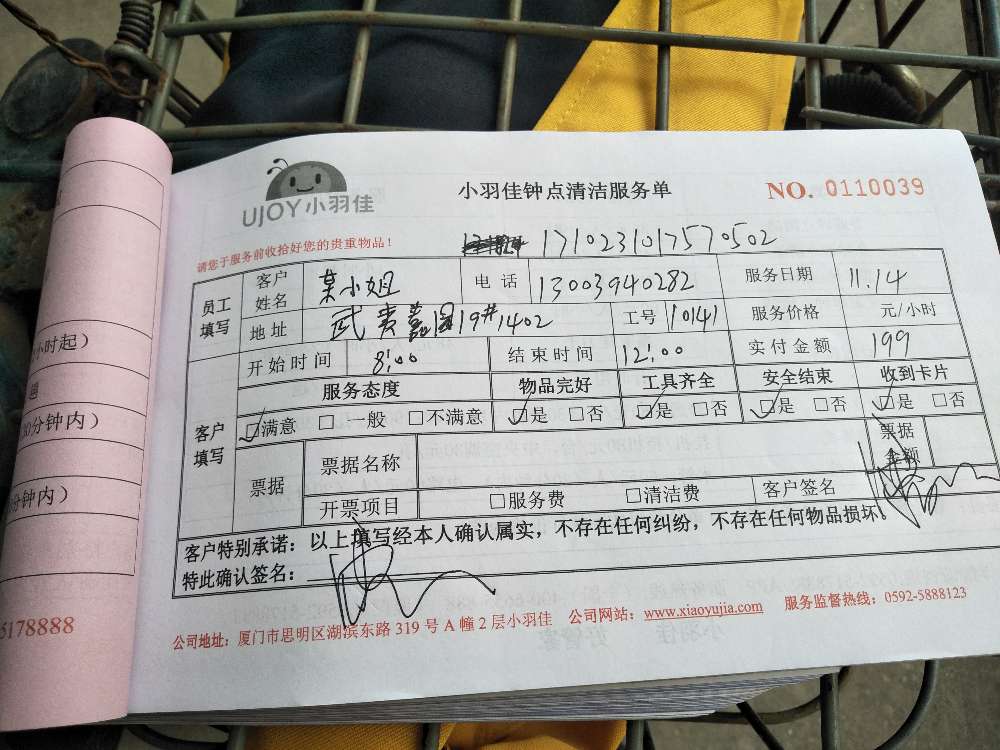 UJOY小羽佳
小羽佳钟点清洁服务单
NO. 0110039
请您于服务前收拾好您的贵重物品！
1710231017570502
员工填写 客户姓名 某小姐 电话 13003940282 服务日期 11.14
地址 武夷嘉园19#1402 工号 10141 服务价格 元/小时
客户填写 开始时间 8:00 结束时间 12:00 实付金额 199
服务态度 物品完好 工具齐全 安全结束 收到卡片
☑满意 □一般 □不满意 ☑是 □否 ☑是 □否 ☑是 □否 ☑是 □否
票据 票据名称 票据金额
开票项目 □服务费 □清洁费 客户签名
客户特别承诺：以上填写经本人确认属实，不存在任何纠纷，不存在任何物品损坏。
特此确认签名：
公司地址：厦门市思明区湖滨东路319号A幢2层小羽佳 公司网站：www.xiaoyujia.com 服务监督热线：0592-5888123
小时起）
0分钟内）
分钟内）
5178888